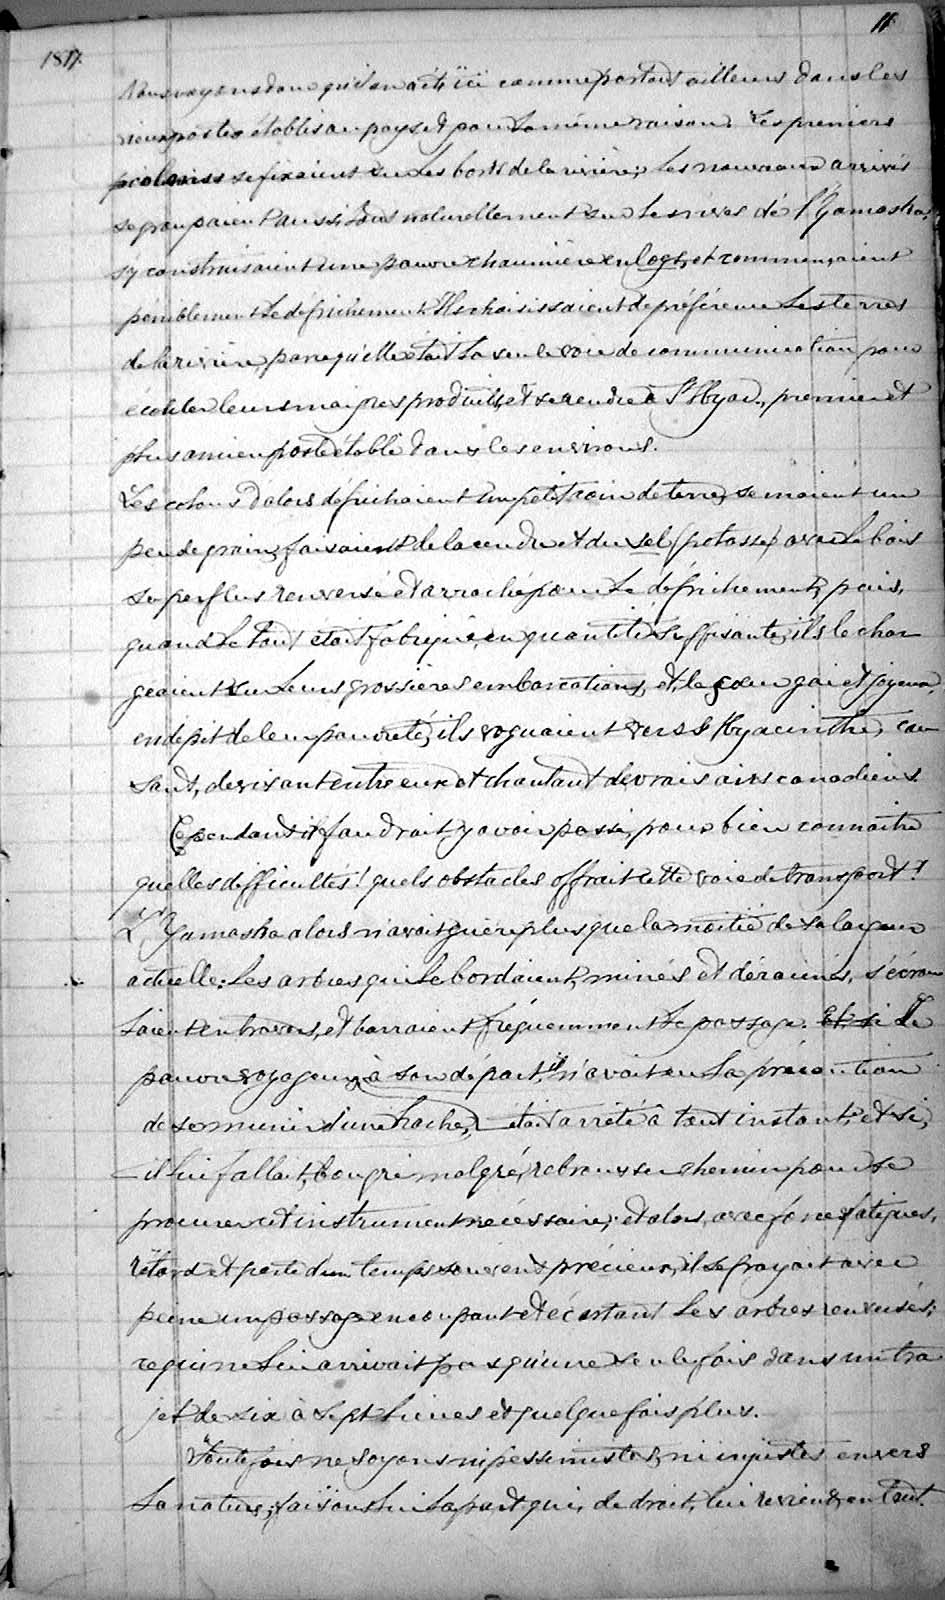 11
1817.
Nous voyons donc qu'il en a été ici comme partout ailleurs dans les
vieux postes établis au pays et pour la même raison. Les premiers
colons se fixaient sur les bords de la rivière; les nouveaux arrivés
se groupaient aussi tout naturellement sur les rives de l'Yamaska;
s'y construisaient une pauvre chaumière en logs, et commençaient
péniblement le défrichement. Ils choisissaient de préférence les terres
de la rivière, parcequ'elle était la seule voie de communication pour
écouler leurs maigres produits, et se rendre à St Hyac., premier et
plus ancien poste établi dans les environs.
Les colons d'alors défrichaient un petit coin de terre, semaient un
peu de grain, faisaient de la cendre et du sel (potasse) avec le bois
superflus renversé et arraché pour le défrichement, puis,
quand le tout était fabriqué, en quantité suffisante, ils le char
geaient sur leurs grossières embarcations, et, le cœur gai et joyeux,
en dépit de leur pauvreté, ils voguaient vers St Hyacinthe, cau
sant, devisant entre eux et chantant de vrais airs canadiens.
Cependant il faudrait y avoir passé, pour bien connaître
quelles difficultés! quels obstacles offrait cette voie de transport!
L'Yamaska alors n'avait guère plus que la moitié de sa largeur
actuelle: les arbres qui le bordaient, minés et déracinés, s'écrou
laient en travers, et barraient fréquemment le passage. Et si Le
pauvre voyageur, à son départ, il n'avait eu la précaution
de se munir d'une hache, était arrêté à tout instant, et si,
il lui fallait, bon gré malgré, rebrousser chemin pour se
procurer cet instrument nécessaire; et alors, avec force fatigues,
retard et perte d'un temps souvent précieux, il se frayait avec
peine un passage en coupant et écartant les arbres renversés;
ce qui ne lui arrivait pas qu'une seule fois dans un tra
jet de six à sept lieues et quelque fois plus.
Toutefois ne soyons ni pessimistes, ni injustes envers
la nature; faisons lui la part qui, de droit, lui revient, en tout.